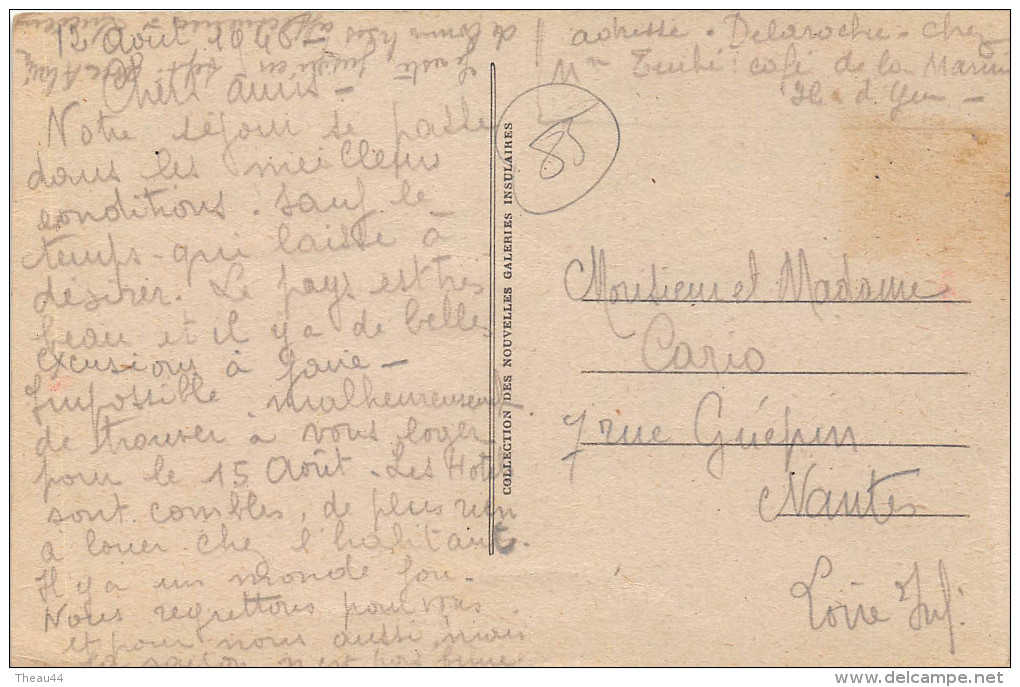 12 Août 194
Chers amis -
Notre séjour se passe
dans les meilleurs
conditions. Sauf le
temps qui laisse à
désirer. Le pays est très
beau et il y a de belles
excusions à faire -
Impossible malheureusement
de trouver à vous loger
pour le 15 Août. Les Hotels
sont combles, de plus rien
a louer chez l'habitant.
Il y a un monde fou.
Nous regrettons pour vous
et pour nous aussi, mais
la saison n'est pas
adresse. Delaroche - chez
café de la Marine
Ile d'Yeu -
85
COLLECTION DES NOUVELLES GALERIES INSULAIRES
Monsieur et Madame
Cario
7 rue Guépin
Nantes
Loire Inf.
Theau44
www.delcampe.net